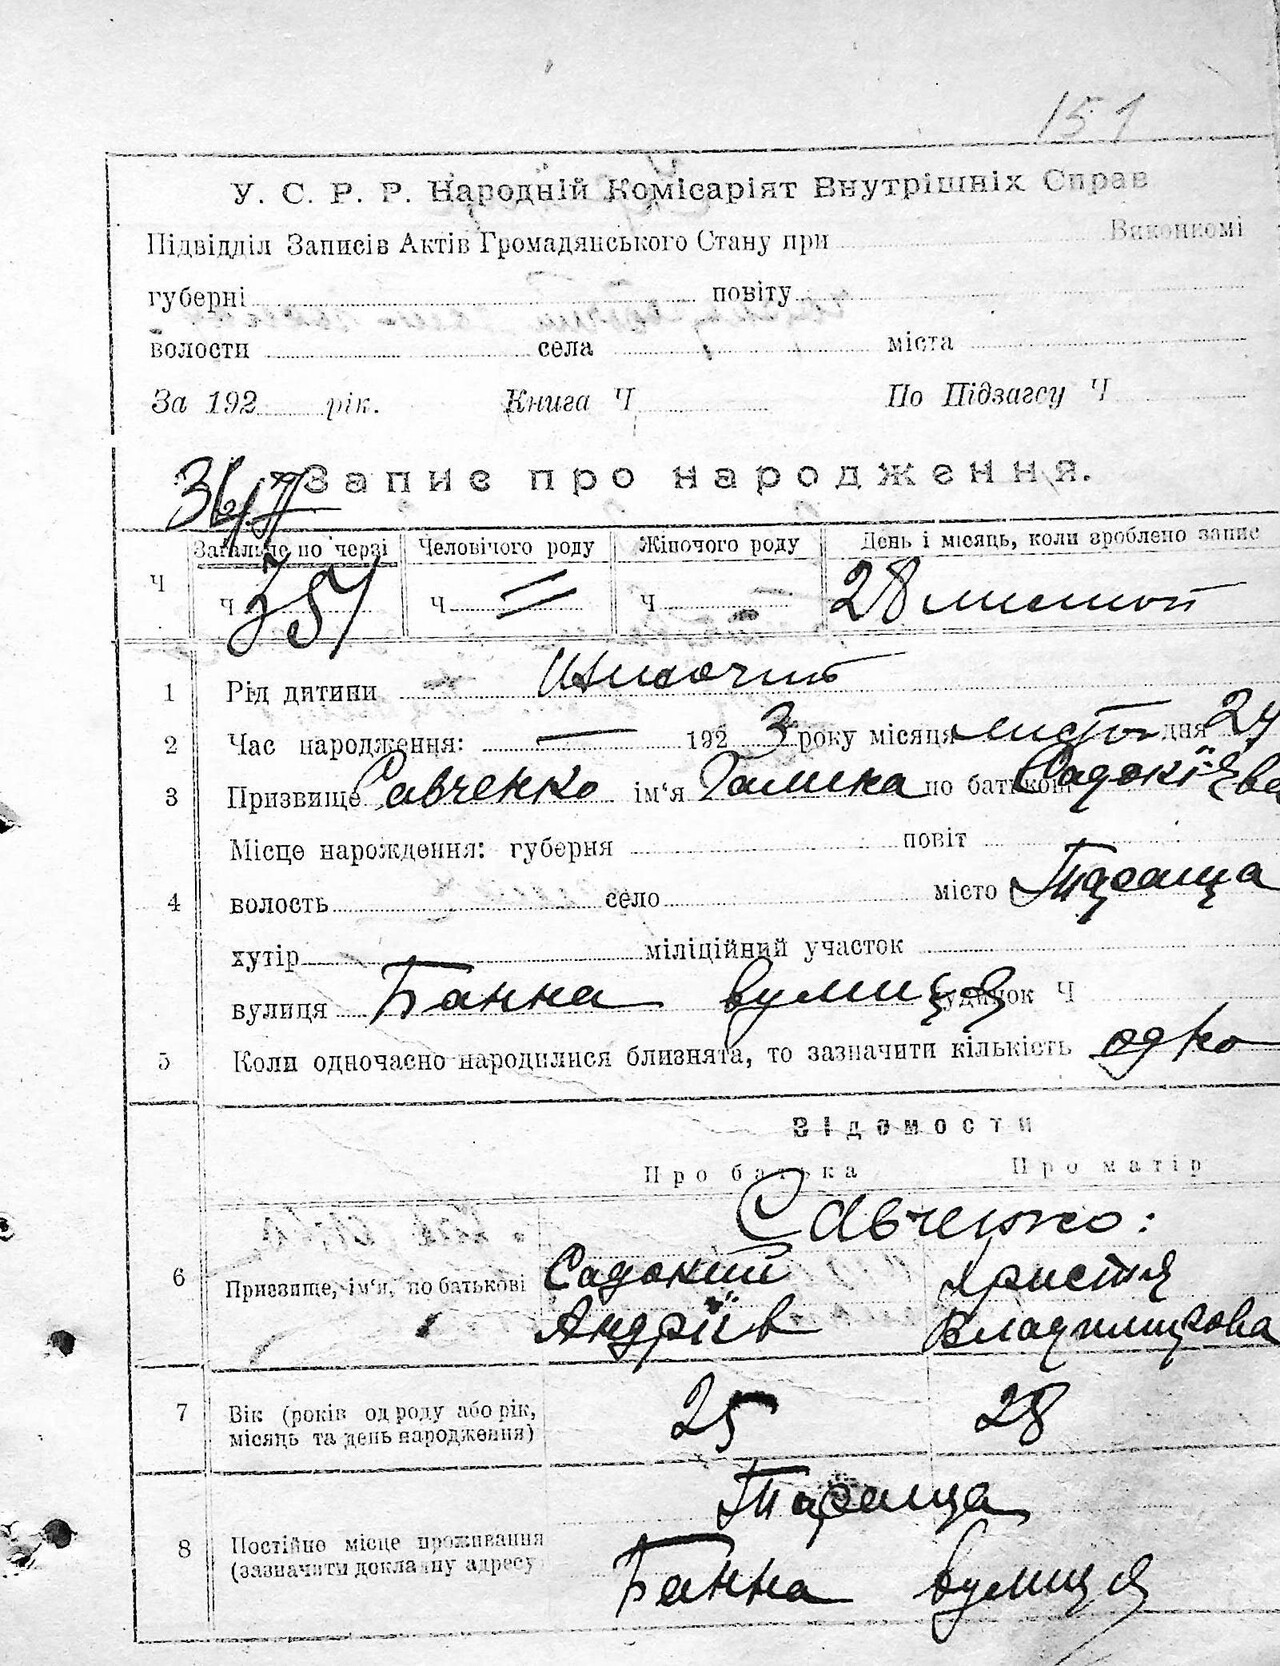 151
У. С. Р. Р. Народній Комісаріят Внутрішніх Справ
Підвідділ Записів Актів Громадянського Стану при Виконкомі
губерні повіту
волости села міста
За 192 рік. Книга Ч По Підзагсу Ч
Запис про народження.
Загальне по черзі Человічого роду Жіночого роду День і місяць, коли зроблено запис
Ч Ч 351 Ч = Ч 28 листоп
1 Рід дитини Жіночий
2 Час народження: — 1923 року місяця листоп дня 24
3 Призвище Савченко ім'я Галина по батькові Садокієва
Місце нарождення: губерня повіт
4 волость село місто Тараща
хутір міліційний участок
вулиця Банна вулиця будинок Ч
5 Коли одночасно народилися близнята, то зазначити кількість одно
Відомости
Про батька Про матір
Савченко:
6 Призвище, ім'я, по батькові Садокий Христя
Андріїв Владимірова
7 Вік (років од роду або рік, місяць та день народження) 25 28
Тараща
8 Постійно місце проживання (зазначити докладну адресу
Банна вулиця